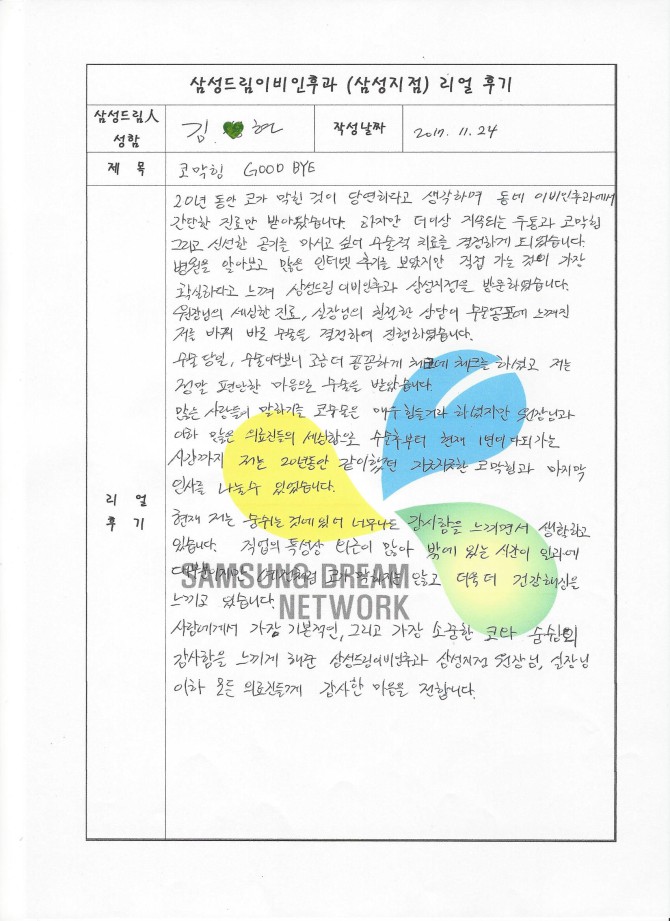 삼성드림이비인후과 (삼성지점) 리얼 후기
삼성드림人
성함
김 현
작성날짜
2017. 11. 24
제 목
코막힘 GOOD BYE
리 얼
후 기
20년 동안 코가 막힌 것이 당연하다고 생각하며 동네 이비인후과에서
간단한 진료만 받아왔습니다. 하지만 더이상 지속되는 두통과 코막힘
그리고 신선한 공기를 마시고 싶어 수술적 치료를 결정하게 되었습니다.
병원을 알아보고 많은 인터넷 후기를 보았지만 직접 가는 것이 가장
확실하다고 느껴 삼성드림이비인후과 삼성지점을 방문하였습니다.
원장님의 세심한 진료, 실장님의 친절한 상담이 수술공포에 느껴진
저를 바꿔 바로 수술을 결정하여 진행하였습니다.
수술 당일, 수술이다보니 조금 더 꼼꼼하게 체크에 체크를 하셨고 저는
정말 편안한 마음으로 수술을 받았습니다.
많은 사람들이 말하기를 코수술은 매우 힘들거라 하셨지만 원장님과
이하 많은 의료진들의 세심함으로 수술후부터 현재 1년이 다되가는
시간까지 저는 20년동안 같이했던 지긋지긋한 코막힘과 마지막
인사를 나눌수 있었습니다.
현재 저는 숨쉬는 것에 있어 너무나도 감사함을 느끼면서 생활하고
있습니다. 직업의 특성상 외근이 많아 밖에 있는 시간이 일과에
대부분이지만 예전처럼 코가 막히지는 않고 더욱 더 건강해짐을
느끼고 있습니다.
사람에게서 가장 기본적인, 그리고 가장 소중한 코와 숨쉼의
감사함을 느끼게 해준 삼성드림이비인후과 삼성지점 원장님, 실장님
이하 모든 의료진들께 감사한 마음을 전합니다.
SAMSUNG DREAM
NETWORK